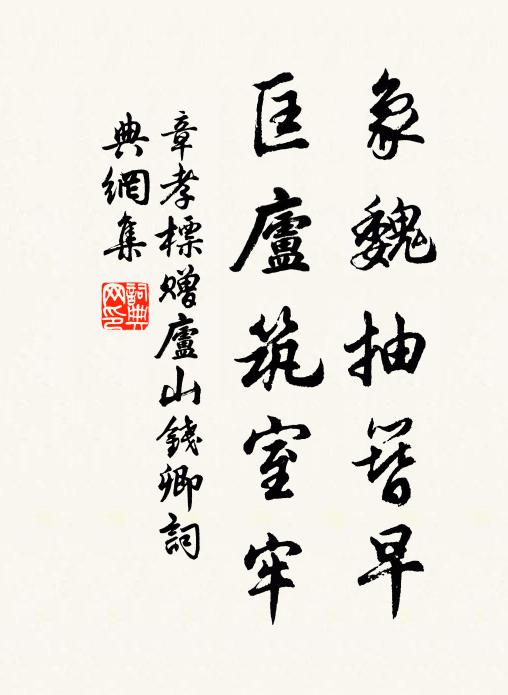 象魏抽簪早
匡廬筑室牢
章孝標赠廬山錢卿詞
典網集
詞典網印